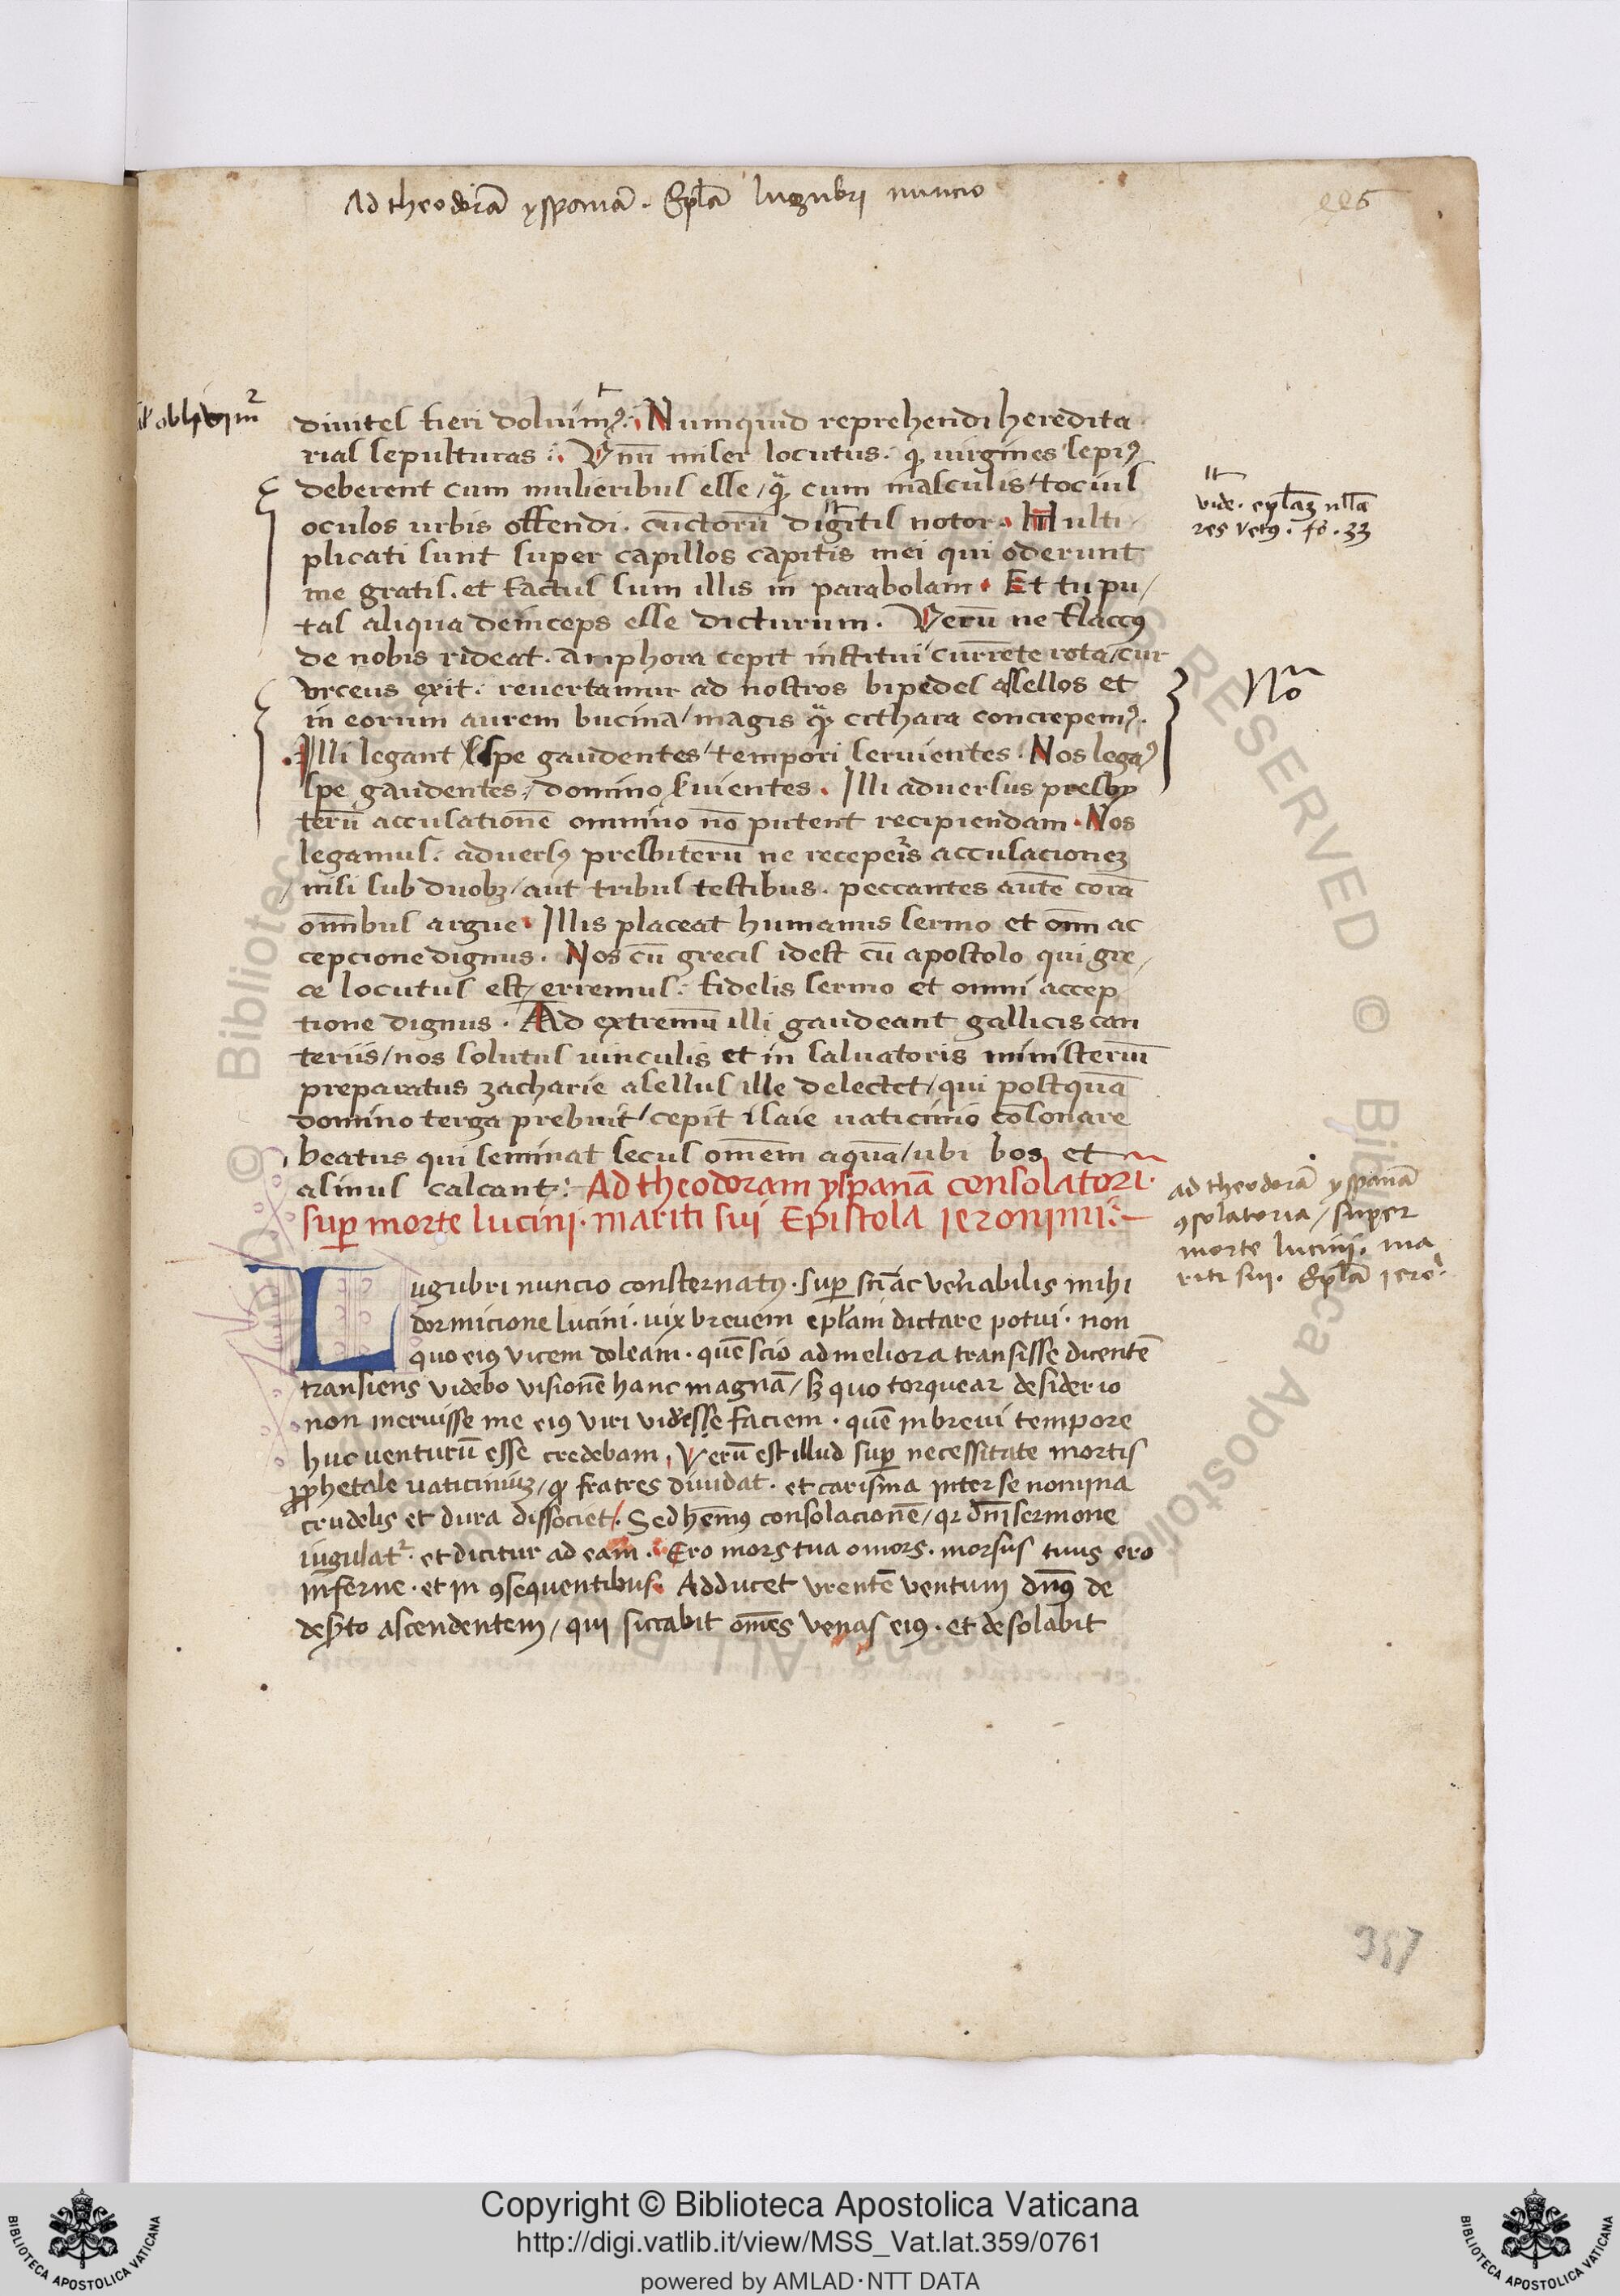 Ad theodorā yspaniā . Epl̄a lugubri nuncio
225
al' obliuim²
diuites fieri doluim⁹. Numquid reprehendi heredita
rias sepulturas. Vnū miser locutus. ꝙ uirgines sepi⁹
deberent cum mulieribus esse / ꝙ̄ cum masculis / tocius
oculos urbis offendi. cunctorū digitis notor. Multi
plicati sunt super capillos capitis mei qui oderunt
me gratis. et factus sum illis in parabolam. Et tu pu/
tas aliqua deinceps esse dicturum. Verū ne flacc⁹
de nobis rideat. amphora cepit institui currēte rota / cur
vrceus exit. reuertamur ad nostros bipedes asellos et
in eorum aurem bucina / magis ꝙ̄ cithara concrepem⁹.
Illi legant spe gaudentes / tempori seruientes. Nos lega⁹
spe gaudentes / domino s̄uientes. Illi aduersus presby
terū accusationē omnino nō putent recipiendam. Nos
legamus. aduers⁹ presbiterū ne receperis accusacioneꝫ
nisi sub duobꝫ / aut tribus testibus. peccantes autē corā
om̄ibus argue. Illis placeat humanus sermo et om̄i ac
cepcione dignus. Nos cū grecis idest cū apostolo qui gre/
ce locutus est / erremus. fidelis sermo et omni accep
tione dignus. Ad extremū illi gaudeant gallicis can
teriis / nos solutus uinculis et in saluatoris ministeriū
preparatus zacharie asellus ille delectet / qui postquā
domino terga prebuit / cepit isaie uaticinio cōsonare
beatus qui seminat secus omēm aquā / ubi bos et
asinus calcant. Ad theodoram yspanā consolatori.
suꝑ morte lucini. mariti sui Epistola ieronimi
Lugubri nuncio consternat⁹. suꝑ sc̄i ac ven̄abilis mihi
dormicione lucini. uix breuem epl̄am dictare potui. non
quo ei⁹ vicem doleam. quē scio ad meliora transisse dicentē
transiens videbo visionē hanc magnā / sꝫ quo torquear desiderio
non meruisse me ei⁹ viri vid'esse faciem. quē in breui tempore
huc venturū esse credebam. Verū est illud suꝑ necessitate mortis
ꝓphetale uaticiniuꝫ / ꝙ fratres diuidat. et carissima inter se nomina
crudelis et dura dissociet. Sed hēm⁹ consolacionē / qꝛ dn̄i sermone
iugulat². et dicitur ad eam. Ero mors tua o mors. morsus tuus ero
inferne. et in ꝯsequentibus. Adducet vrentē ventum dn̄⁹ de
des̄to ascendentem / qui siccabit om̄es venas ei⁹. et desolabit
vide. epl̄aꝫ
res vet⁹. fo. 33
Nō
ad theodorā yspanā
ꝯsolatoria / super
morte lucini. ma
riti sui. Epl̄a iero.
357
© Biblioteca Apostolica Vaticana ALL RIGHTS RESERVED
Copyright © Biblioteca Apostolica Vaticana
http://digi.vatlib.it/view/MSS_Vat.lat.359/0761
powered by AMLAD·NTT DATA
BIBLIOTECA APOSTOLICA VATICANA
BIBLIOTECA APOSTOLICA VATICANA